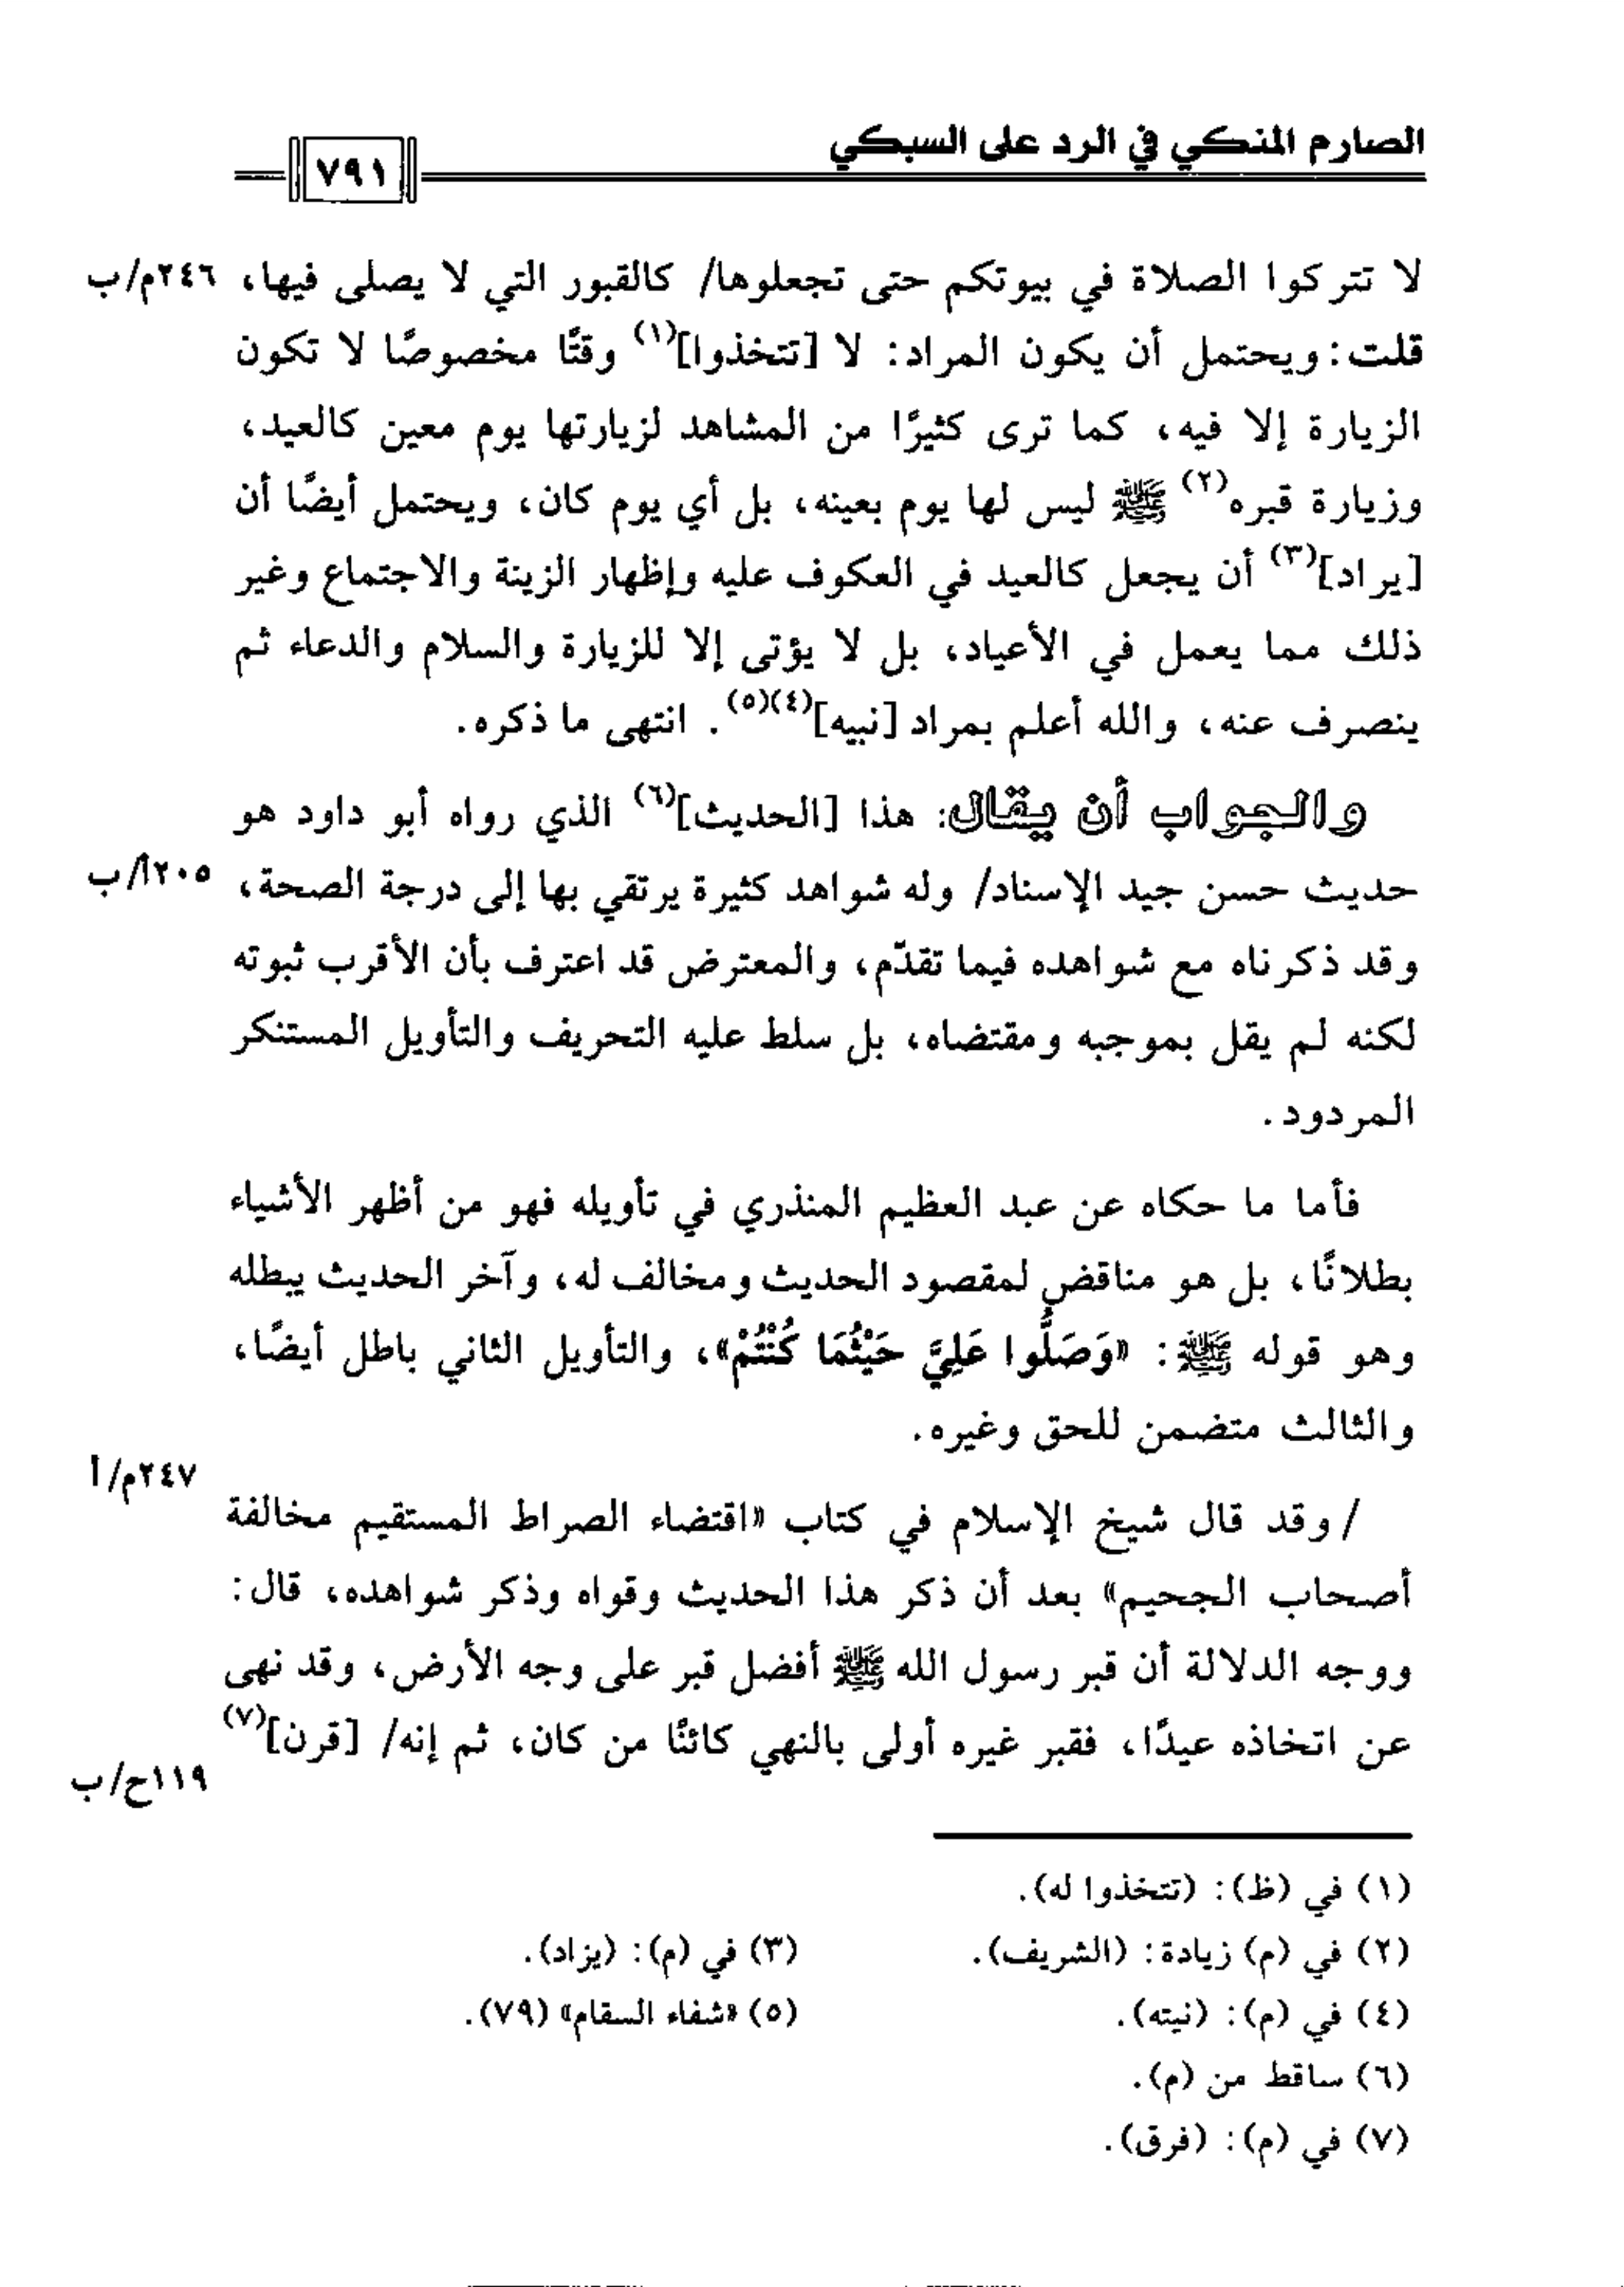 الصارم المنكي في الرد على السبكي
٧٩١
لا تتركوا الصلاة في بيوتكم حتى تجعلوها/ كالقبور التي لا يصلى فيها، ٢٤٦م/ب
قلت: ويحتمل أن يكون المراد: لا [تتخذوا](١) وقتًا مخصوصًا لا تكون
الزيارة إلا فيه، كما ترى كثيرًا من المشاهد لزيارتها يوم معين كالعيد،
وزيارة قبره(٢) ﷺ ليس لها يوم بعينه، بل أي يوم كان، ويحتمل أيضًا أن
[يراد](٣) أن يجعل كالعيد في العكوف عليه وإظهار الزينة والاجتماع وغير
ذلك مما يعمل في الأعياد، بل لا يؤتى إلا للزيارة والسلام والدعاء ثم
ينصرف عنه، والله أعلم بمراد [نبيه](٤)(٥). انتهى ما ذكره.
والجواب أن يقال: هذا [الحديث](٦) الذي رواه أبو داود هو
حديث حسن جيد الإسناد/ وله شواهد كثيرة يرتقي بها إلى درجة الصحة، ٢٠٥أ/ب
وقد ذكرناه مع شواهده فيما تقدّم، والمعترض قد اعترف بأن الأقرب ثبوته
لكنه لم يقل بموجبه ومقتضاه، بل سلط عليه التحريف والتأويل المستنكر
المردود.
فأما ما حكاه عن عبد العظيم المنذري في تأويله فهو من أظهر الأشياء
بطلانًا، بل هو مناقض لمقصود الحديث ومخالف له، وآخر الحديث يبطله
وهو قوله ﷺ: «وَصَلُّوا عَلِيَّ حَيْثُمَا كُنْتُمْ»، والتأويل الثاني باطل أيضًا،
والثالث متضمن للحق وغيره.
٢٤٧م/أ
/ وقد قال شيخ الإسلام في كتاب «اقتضاء الصراط المستقيم مخالفة
أصحاب الجحيم» بعد أن ذكر هذا الحديث وقواه وذكر شواهده، قال:
ووجه الدلالة أن قبر رسول الله ﷺ أفضل قبر على وجه الأرض، وقد نهى
عن اتخاذه عيدًا، فقبر غيره أولى بالنهي كائنًا من كان، ثم إنه/ [قرن](٧)
١١٩ح/ب
(١) في (ظ): (تتخذوا له).
(٢) في (م) زيادة: (الشريف).
(٣) في (م): (يزاد).
(٤) في (م): (نيته).
(٥) «شفاء السقام» (٧٩).
(٦) ساقط من (م).
(٧) في (م): (فرق).